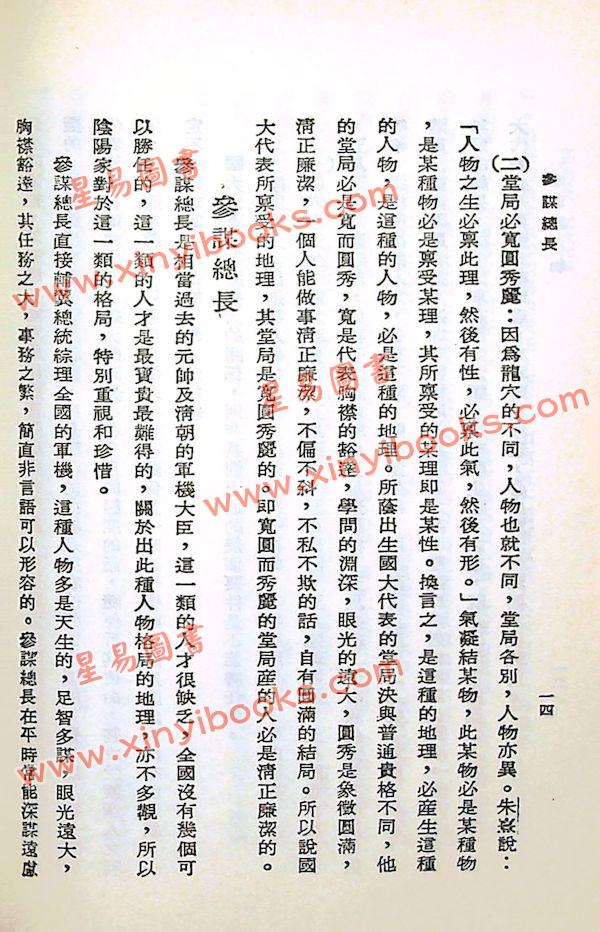 參謀總長
一四
㈡堂局必寬圓秀麗：因爲龍穴的不同，人物也就不同，堂局各別，人物亦異。朱熹說：
「人物之生必禀此理，然後有性，必禀此氣，然後有形。」氣凝結某物，此某物必是某種物
，是某種物必是禀受某理，其所禀受的某理即是某性。換言之，是這種的地理，必産生這種
的人物，是這種的人物，必是這種的地理。所蔭出生國大代表的堂局決與普通貴格不同，他
的堂局必是寬而圓秀，寬是代表胸襟的豁達，學問的淵深，眼光的遠大，圓秀是象徵圓滿，
清正廉潔，一個人能做事清正廉潔，不偏不斜，不私不欺的話，自有圓滿的結局。所以說國
大代表所禀受的地理，其堂局是寬圓秀麗的。即寬圓而秀麗的堂局産的人必是清正廉潔的。
參謀總長
參謀總長是相當過去的元帥及清朝的軍機大臣，這一類的人才很缺乏，全國沒有幾個可
以勝任的，這一類的人才是最寶貴最難得的，關於出此種人物格局的地理，亦不多覩，所以
陰陽家對於這一類的格局，特別重視和珍惜。
參謀總長直接輔翼總統綜理全國的軍機，這種人物多是天生的，足智多謀，眼光遠大，
胸襟豁達，其任務之大，事務之繁，簡直非言語可以形容的。參謀總長在平時常能深謀遠慮
星易圖書
www.xinyibooks.com
星易圖書
www.xinyibooks.com
星易圖書
www.xinyibooks.com